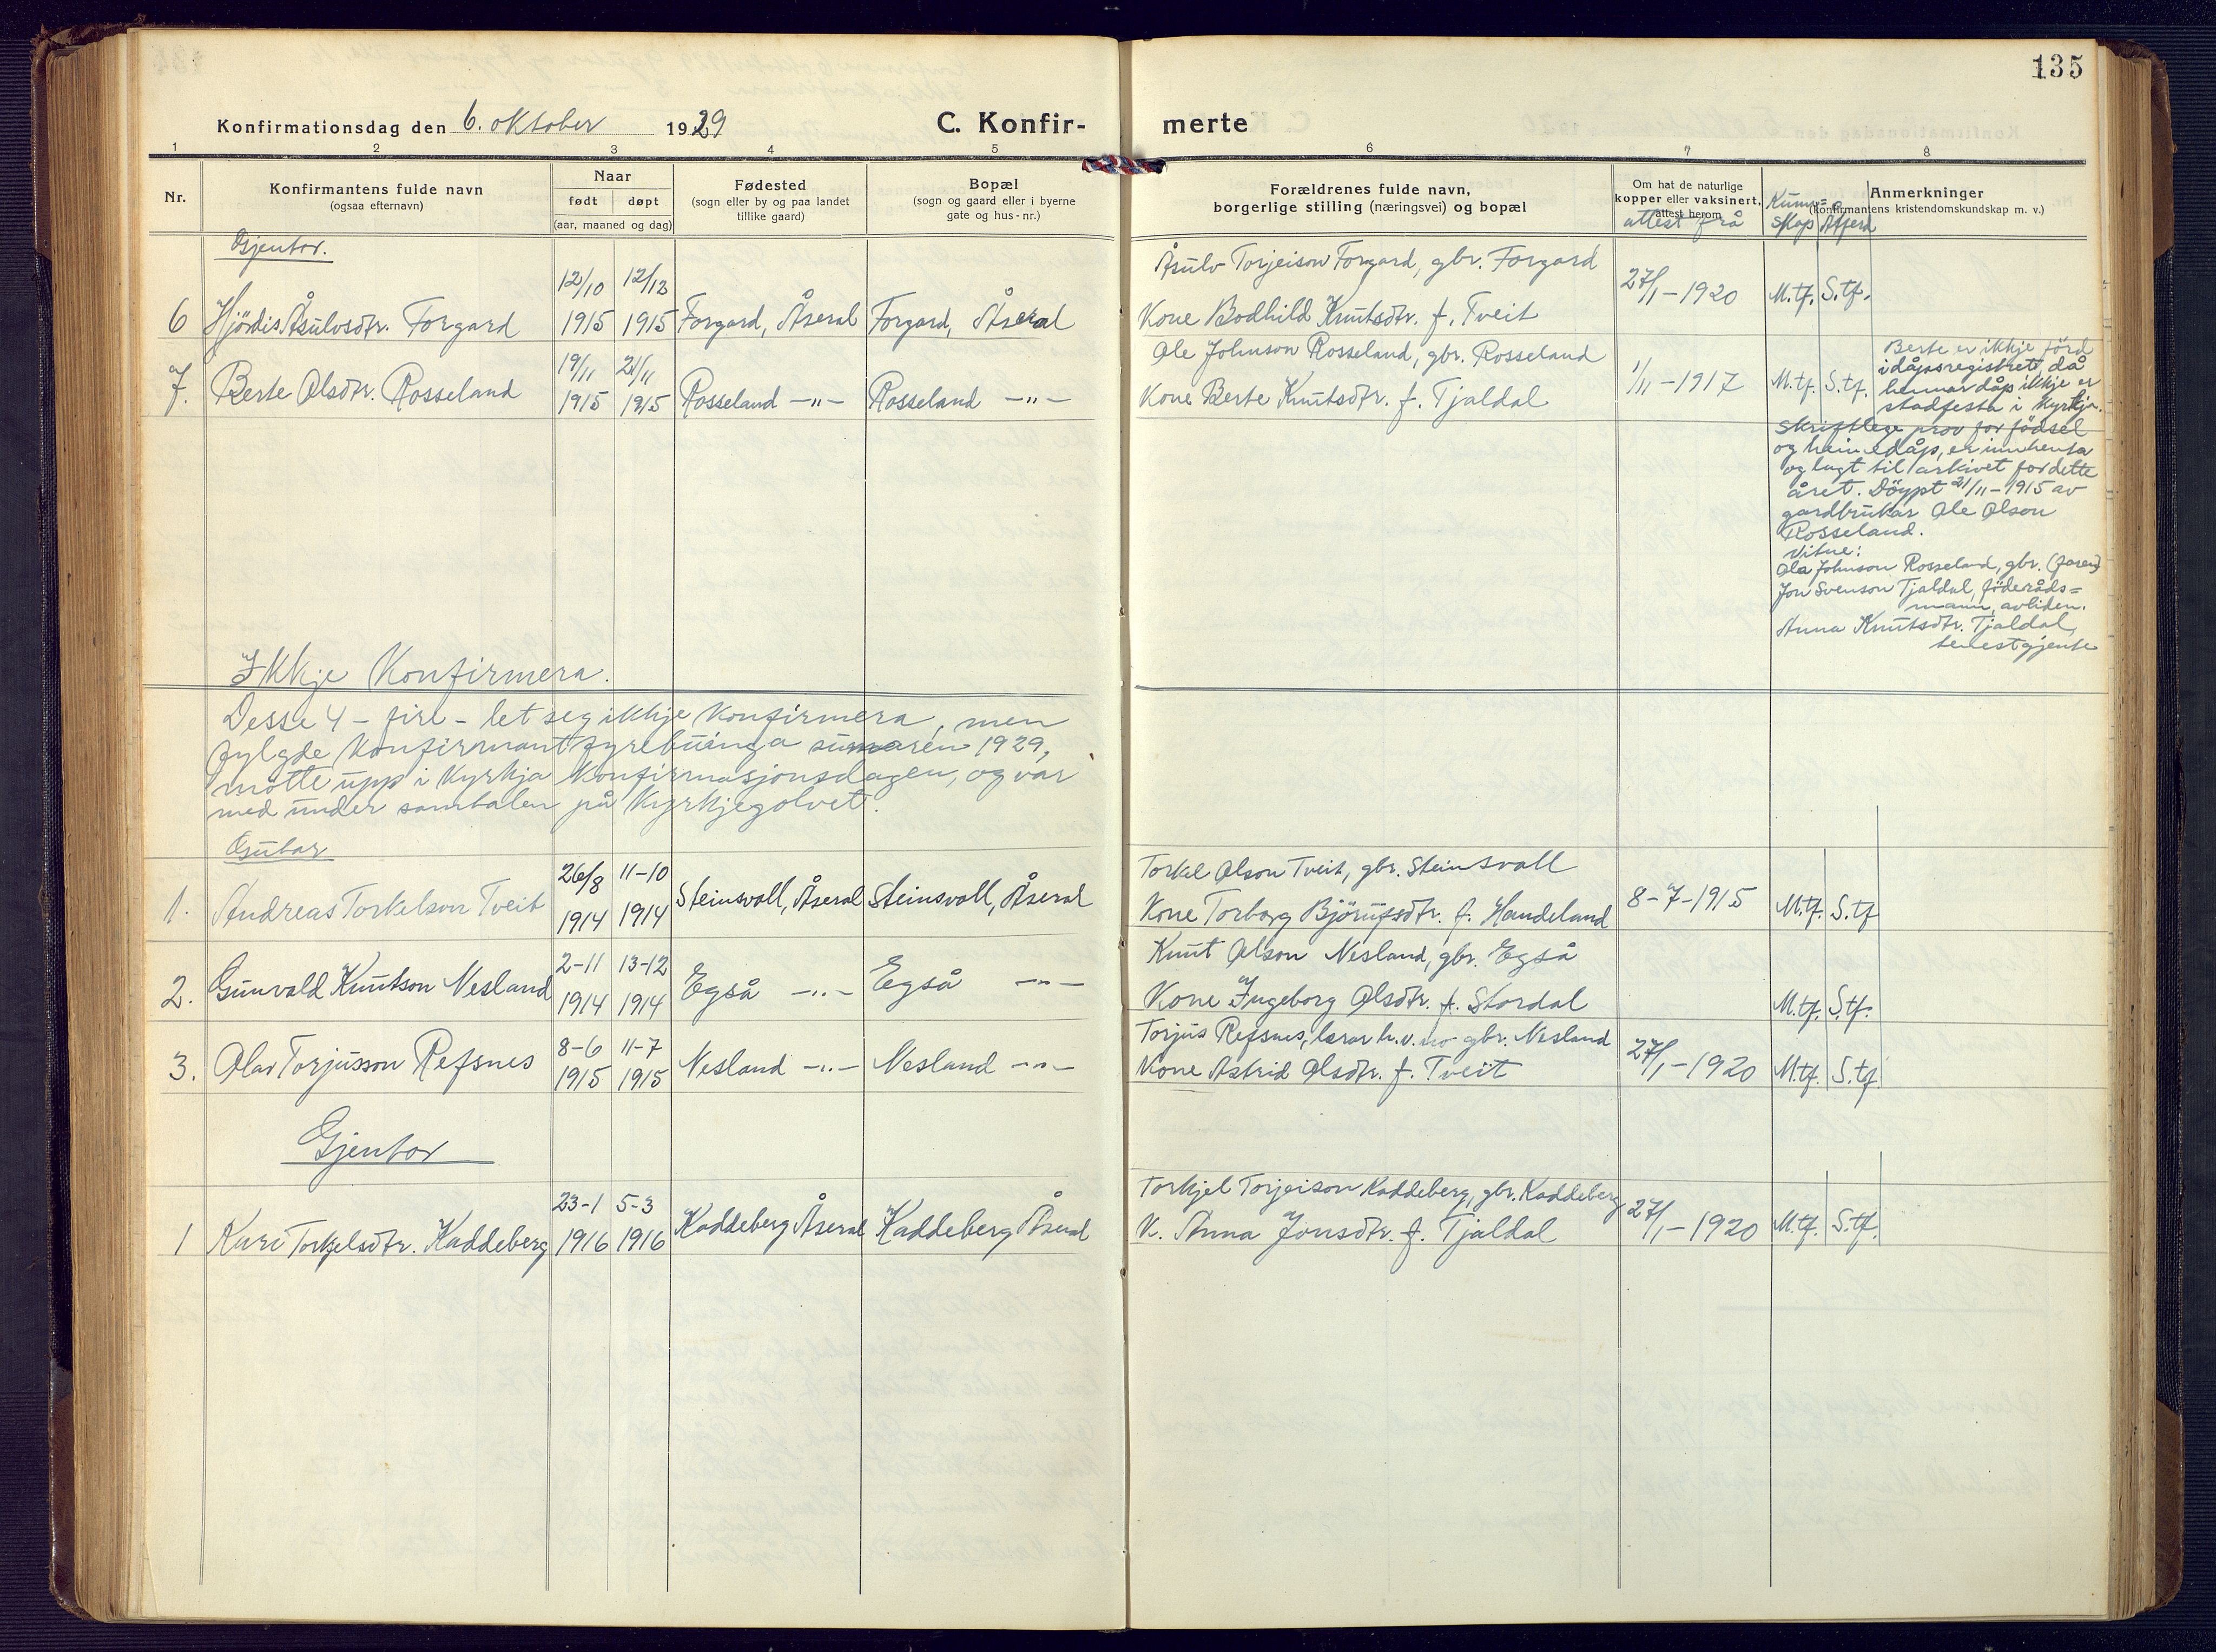 135
Konfirmationsdag den 6. oktober 1929
C. Konfir-
merte
1 2 3 4 5 6 7 8
Nr.
Konfirmantens fulde navn
(ogsaa efternavn)
Naar
født døpt
(aar, maaned og dag)
Fødested
(sogn eller by og paa landet
tillike gaard)
Bopæl
(sogn og gaard eller i byerne
gate og hus-nr.)
Forældrenes fulde navn,
borgerlige stilling (næringsvei) og bopæl
Om hat de naturlige
kopper eller vaksinert,
attest herom
attest frå
Kunn=
skap
Åtferd
Anmerkninger
(konfirmantens kristendomskundskap m. v.)
Gjentor.
12/10 12/12
6 Hjördis Åsulvsdtr. Forgard 1915 1915 Forgard, Åseral Forgard, Åseral
Åsulv Torjeison Forgard, gbr. Forgard
Kone Bodhild Knutsdtr. f. Tveit
27/1-1920 M.tf. S.tf.
19/11 21/11
7. Berte Olsdtr. Rosseland 1915 1915 Rosseland -"- Rosseland -"-
Ole Johnson Rosseland, gbr. Rosseland
Kone Berte Knutsdtr. f. Tjaldal
1/11-1917 M.tf. S.tf.
Berte er ikkje förd
i dåpsregistret, då
hennar dåp ikkje er
stadfesta i kyrkja.
Skriftlege prov for födsel
og heimedåp, er innhenta
og lagt til arkivet for dette
året. Döypt 21/11-1915 av
gardbrukar Ole Olson
Rosseland.
Vitne:
Ola Johnson Rosseland, gbr. (faren)
Jon Svenson Tjaldal, föderåds=
mann, avliden.
Anna Knutsdtr. Tjaldal,
tenestgjente
Ikkje Konfirmera.
Desse 4 - fire - let seg ikkje konfirmera, men
fylgde konfirmantfyrebuinga sumaren 1929,
mötte upp i kyrkja konfirmasjonsdagen, og var
med under samtalen på kyrkjegolvet.
Gutar
26/8 11-10
1. Andreas Torkelson Tveit 1914 1914 Steinsvoll, Åseral Steinsvoll, Åseral
Torkel Olson Tveit, gbr. Steinsvoll
Kone Torborg Björufsdtr. f. Handeland
8-7-1915 M.tf. S.tf
2-11 13-12
2. Gunvald Knutson Nesland 1914 1914 Egså -"- Egså -"-
Knut Olson Nesland, gbr. Egså
Kone Ingeborg Olsdtr. f. Stordal
M.tf. S.tf.
8-6 11-7
3. Olav Torjusson Refsnes 1915 1915 Nesland -"- Nesland -"-
Torjus Refsnes, lærar h.v. no gbr. Nesland
Kone Astrid Olsdtr. f. Tveit
27/1-1920 M.tf. S.tf
Gjentor
23-1 5-3
1 Kari Torkjelsdtr. Kaddeberg 1916 1916 Kaddeberg Åseral Kaddeberg Åseral
Torkjel Torjeison Kaddeberg, gbr. Kaddeberg
K. Anna Jonsdtr. f. Tjaldal
27/1-1920 M.tf. S.tf.